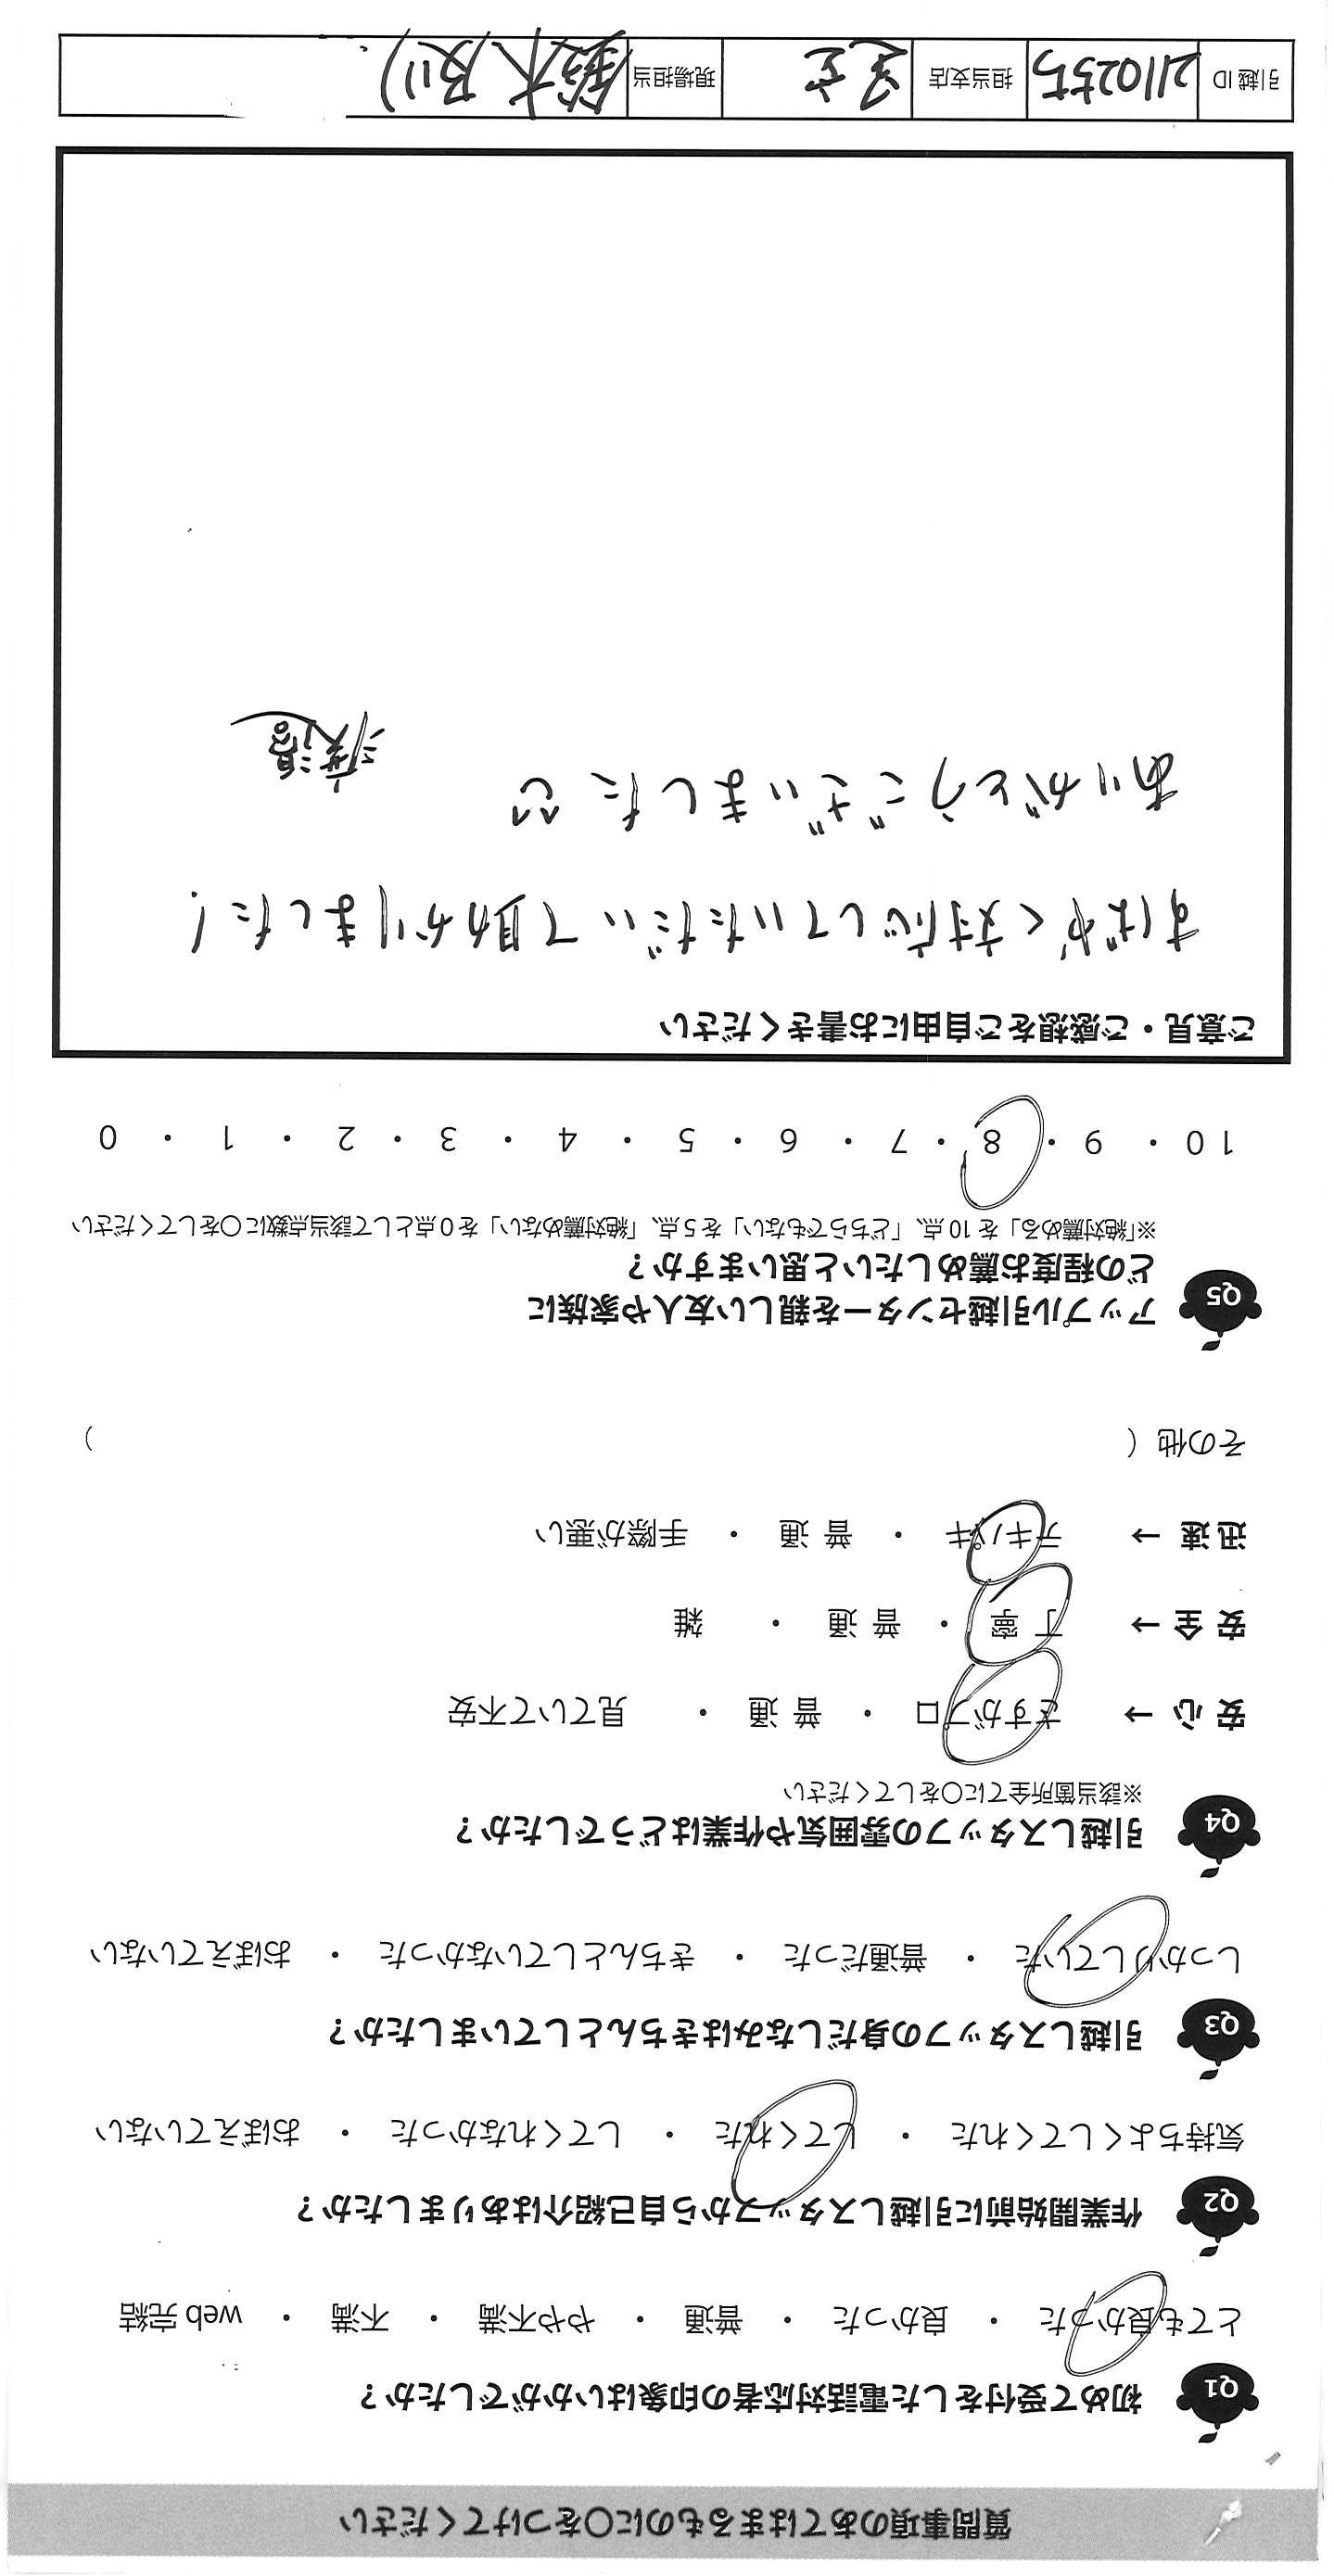 質問事項のあてはまるものに○をつけてください
Q1 初めて受付をした電話対応者の印象はいかがでしたか？
とても良かった ・ 良かった ・ 普通 ・ やや不満 ・ 不満 ・ web 完結
Q2 作業開始前に引越しスタッフから自己紹介はありましたか？
気持ちよくしてくれた ・ してくれた ・ してくれなかった ・ おぼえていない
Q3 引越しスタッフの身だしなみはきちんとしていましたか？
しっかりしていた ・ 普通だった ・ きちんとしていなかった ・ おぼえていない
Q4 引越しスタッフの雰囲気や作業はどうでしたか？
※該当箇所全てに○をしてください
安 心 → さすがプロ ・ 普 通 ・ 見ていて不安
安 全 → 丁 寧 ・ 普 通 ・ 雑
迅 速 → テキパキ ・ 普 通 ・ 手際が悪い
その他（ ）
Q5 アップル引越センターを親しい友人や家族に
どの程度お薦めしたいと思いますか？
※「絶対薦める」を 10 点、「どちらでもない」を 5 点、「絶対薦めない」を 0 点として該当点数に○をしてください
10 ・ 9 ・ 8 ・ 7 ・ 6 ・ 5 ・ 4 ・ 3 ・ 2 ・ 1 ・ 0
ご意見・ご感想をご自由にお書きください
すばやく対応していただいて助かりました！
ありがとうございました
引越 ID 2110255 担当支店 現場担当 鈴木 及川